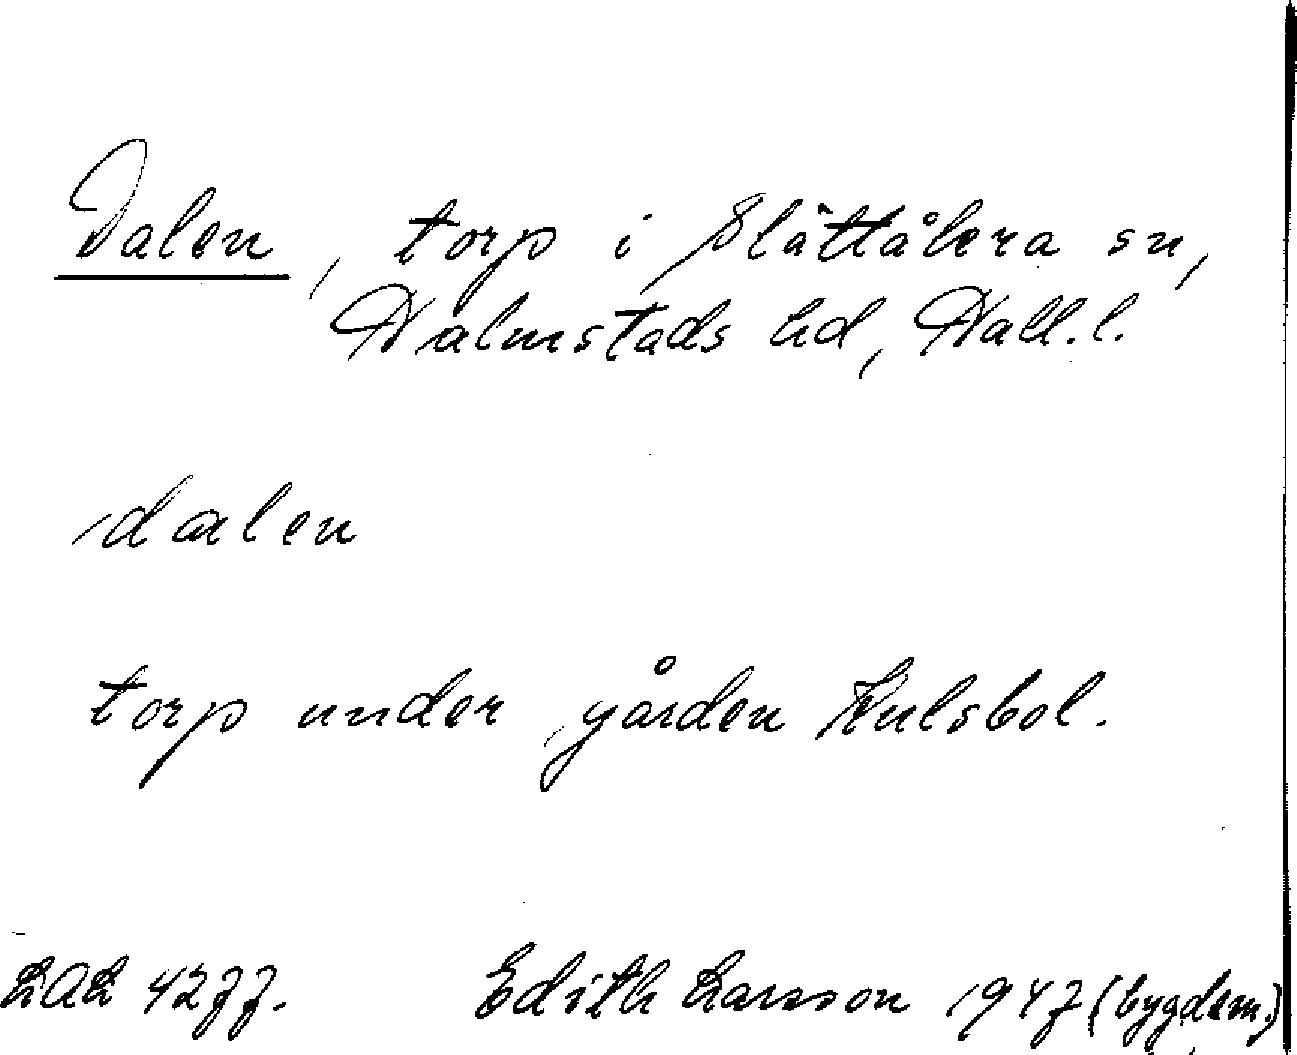 Dalen, torp i Slättåkra sn,
Halmstads hd, Hall.l.
dalen
torp under gården Kulsbol.
LAL 4277.
Edith Larsson 1947 (bygdem.)